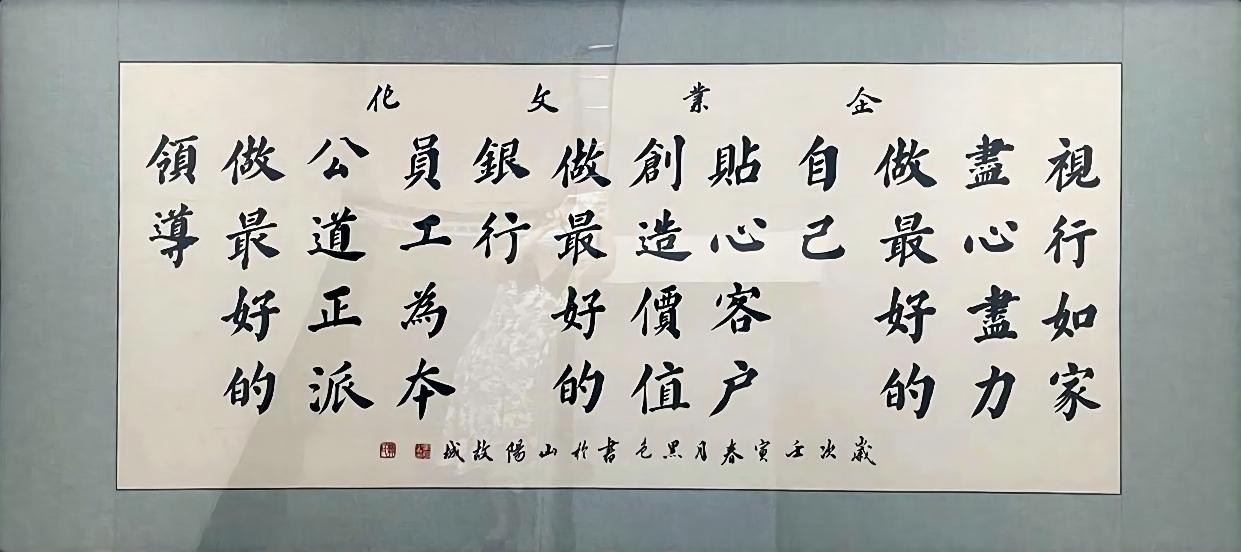 企業文化
視行如家
盡心盡力
做最好的
自己
貼心客户
創造價值
做最好的
銀行
員工為本
公道正派
做最好的
領導
歲次壬寅春月黑色書於山陽故城